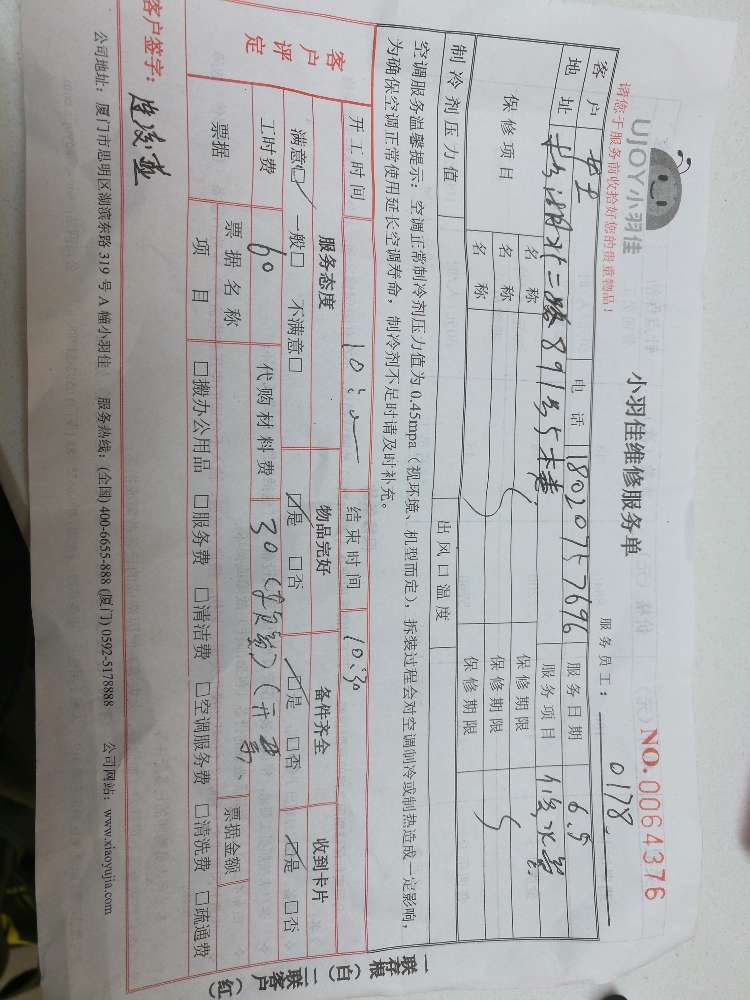 UJOY小羽佳
小羽佳维修服务单
NO. 0064376
请您于服务前收拾好您的贵重物品！
服务员工： 0178
客户 女士 电话 18020757696 服务日期 6.5
地址 二路891号 服务项目 水管
保修项目 名称 保修期限
名称 保修期限
名称 保修期限
制冷剂压力值 出风口温度
空调服务温馨提示：空调正常制冷剂压力值为0.45mpa（视环境、机型而定），拆装过程会对空调制冷或制热造成一定影响，
为确保空调正常使用延长空调寿命，制冷剂不足时请及时补充。
开工时间 结束时间 10:30
客户评定 服务态度 物品完好 备件齐全 收到卡片
满意□ 一般□ 不满意□ □是 □否 □是 □否 □是 □否
工时费 60 代购材料费 30
票据 票据名称 票据金额
项目 □搬办公用品 □服务费 □清洁费 □空调服务费 □清洗费 □疏通费
客户签字：
公司地址：厦门市思明区湖滨东路319号A幢小羽佳 服务热线：(全国) 400-6655-888 (厦门) 0592-5178888 公司网站：www.xiaoyujia.com
一联存根（白） 二联客户（红）